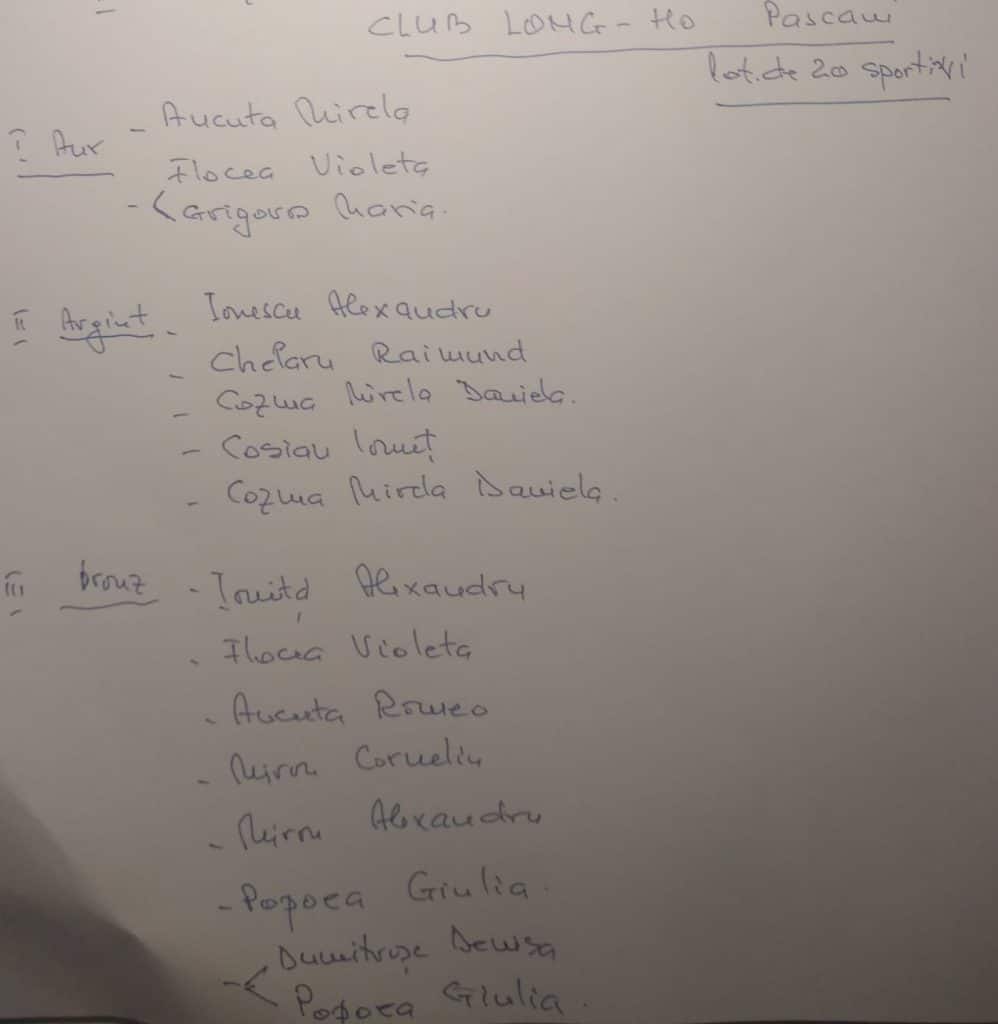 CLUB LONG-HO Pascani
lot.de 20 sportivi
I Aur - Aucuta Mirela
Flocea Violeta
- < Grigoras Maria.
II Argint - Ionescu Alexandru
- Chelaru Raimund
- Cozma Mirela Daniela.
- Cosian Ionuț
- Cozma Mirela Daniela.
III bronz - Ioniță Alexandru
- Flocea Violeta
- Aucuta Romeo
- Miron Corneliu
- Miron Alexandru
- Popoea Giulia.
- < Dumitrașc Denisa
Popoea Giulia.